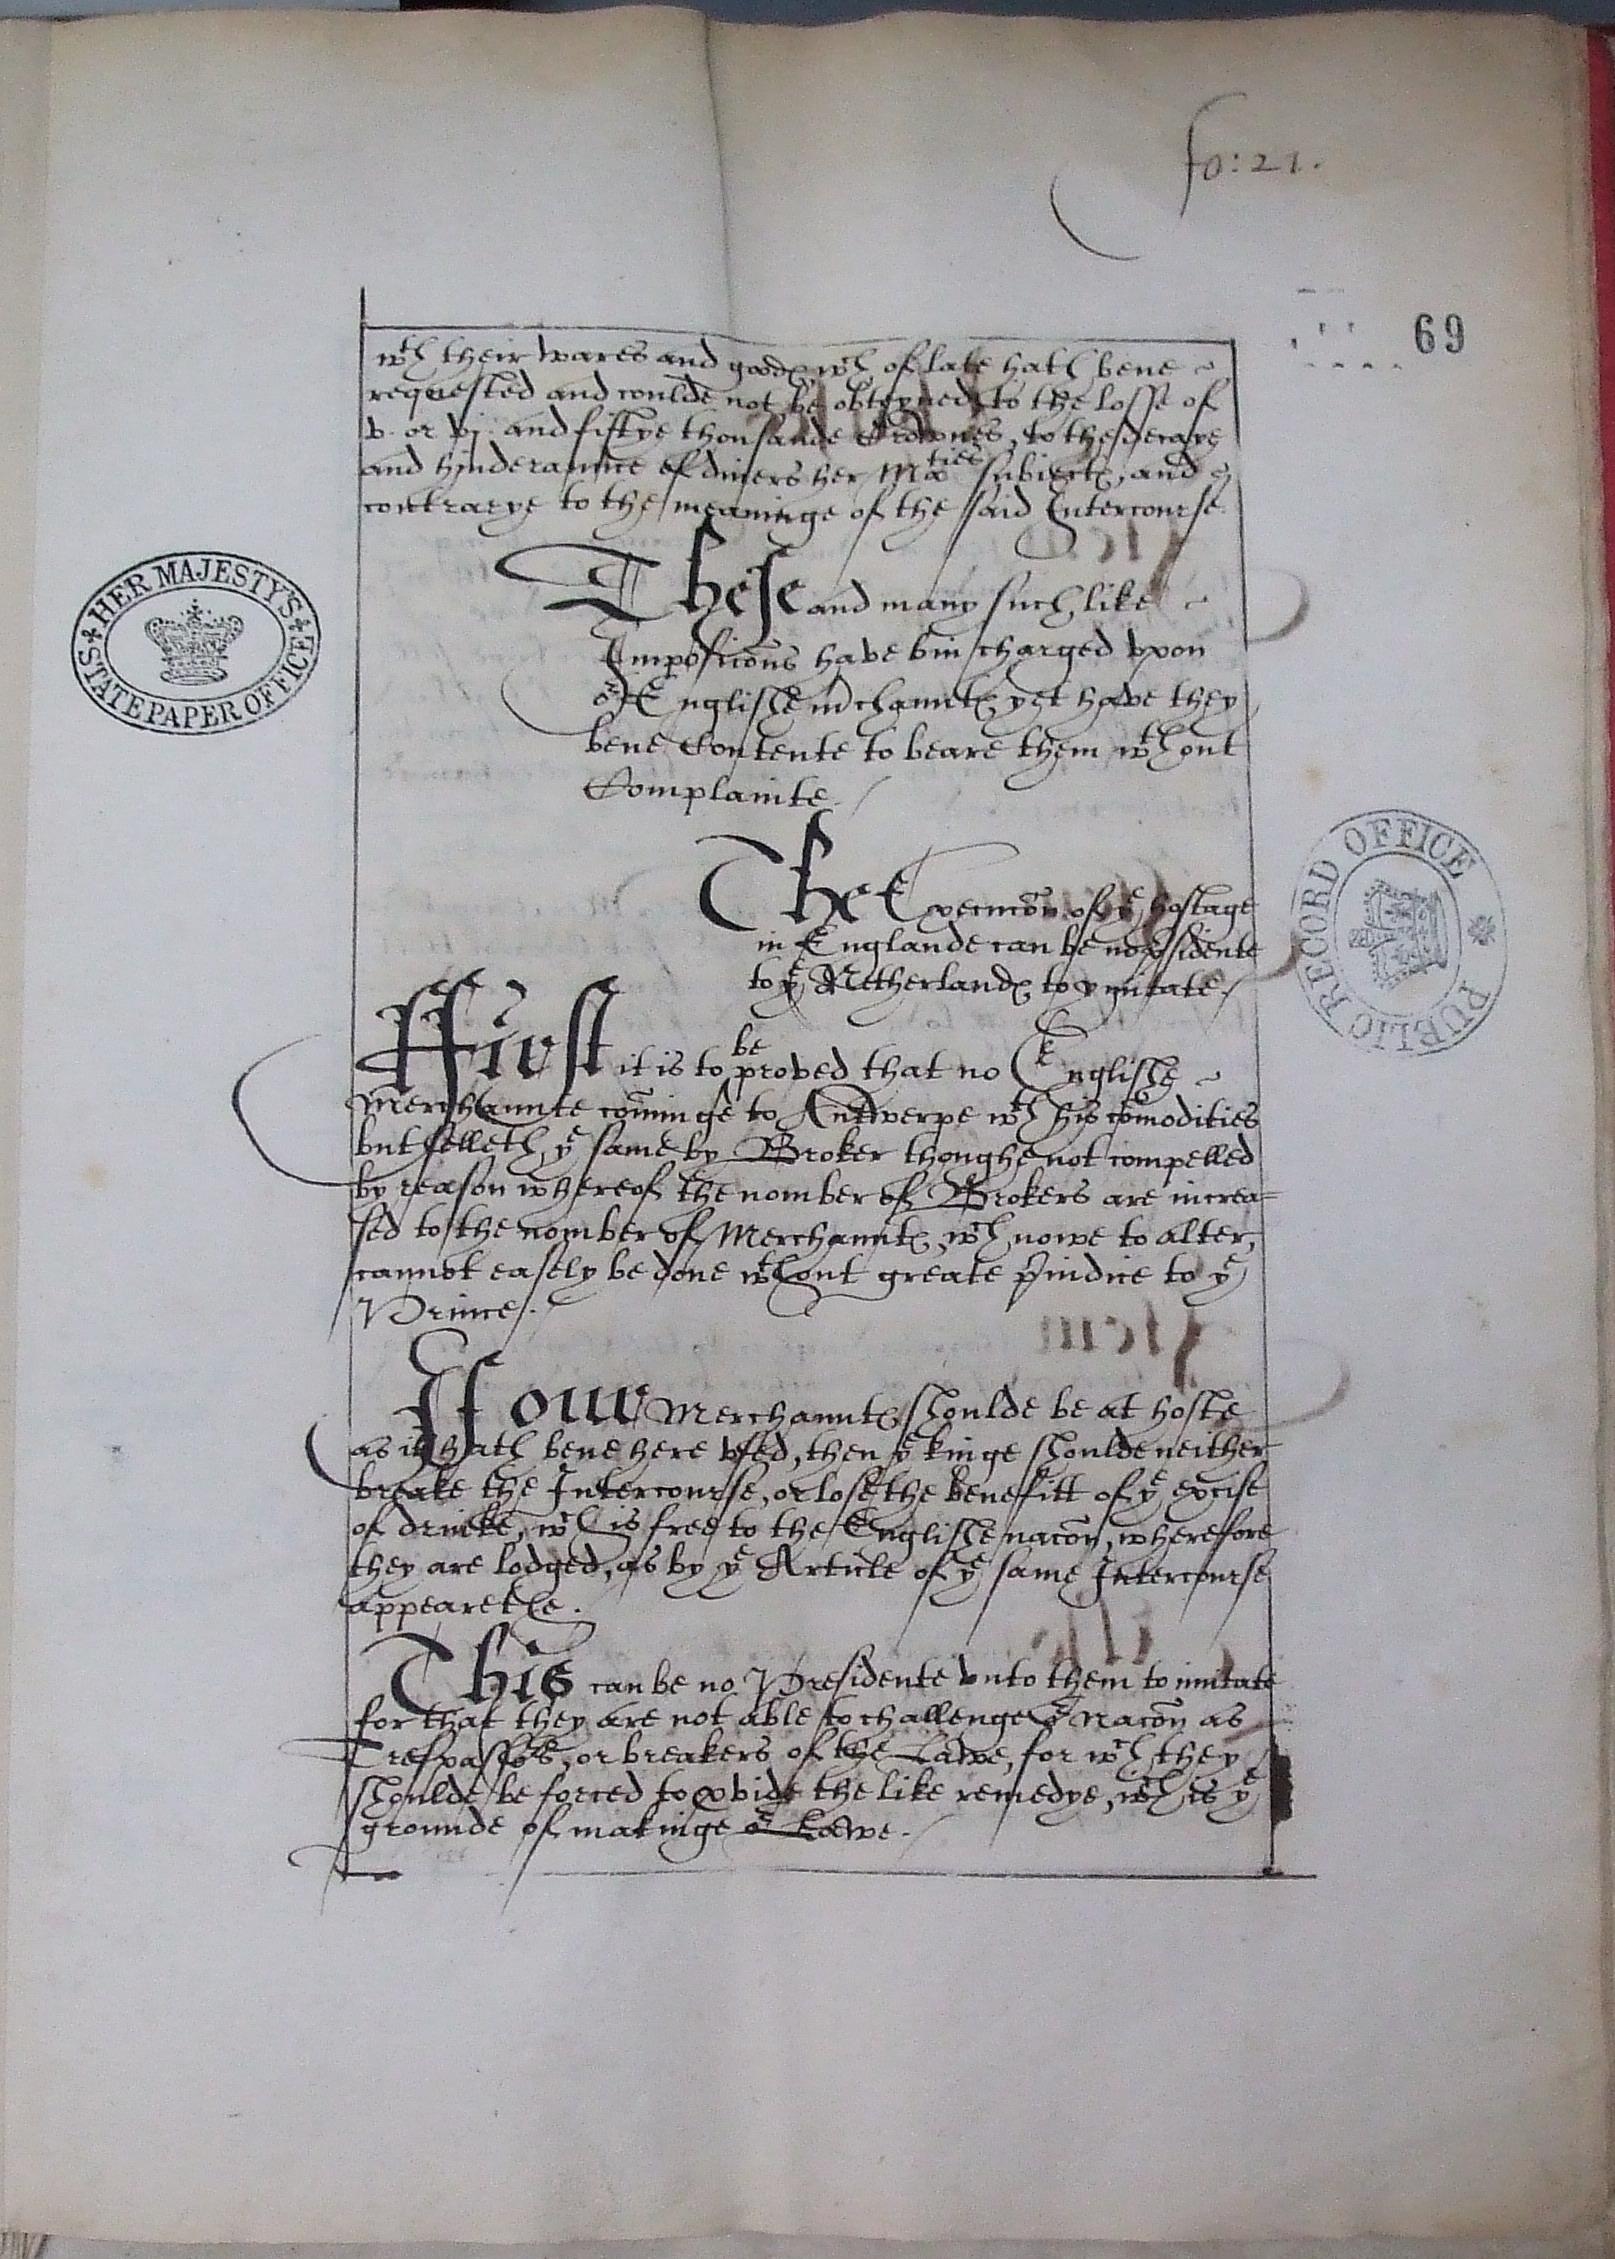 fo: 21.
69
wth their wares and goodes wch of late hath bene
requested and coulde not be obteyned, to the losse of
v. or vj. and fiftye thousande Crownes, to the decaye
and hinderaunce of divers her Maties subiectes, and
contrarye to the meaninge of the said Intercourse.
These and many such like
Imposicõns have bin charged vpon
or Englishe mchauntes, yet have they
bene Contente to beare them wthout
Complainte.
The Execucõn of ye hostage
in Englande can be no psidente
to ye Netherlandes to ymitate.
First it is to be proved that no Englishe
Merchaunte cõminge to Andwerpe wth his cõmodities
but selleth ye same by Broker thoughe not compelled
by reason whereof the nomber of Brokers are increa=
sed to the nomber of Merchauntes, wch nowe to alter,
cannot easely be done wthout greate piudice to ye
Prince.
If our Merchauntes shoulde be at hoste
as it hath bene here vsed, then ye kinge shoulde neither
breake the Intercourse, or lose the benefitt of ye excise
of drincke, wch is free to the Englishe nacõn, wherefore
they are lodged, as by ye Article of ye same Intercourse
appearethe.
This can be no Presidente vnto them to imitate
for that they are not able to challenge or nacõn as
Trespassors, or breakers of the Lawe, for wch they
shoulde be forced to pvide the like remedye, wch is ye
grounde of makinge or Lawe.
HER MAJESTY'S
STATE PAPER OFFICE
PUBLIC RECORD OFFICE